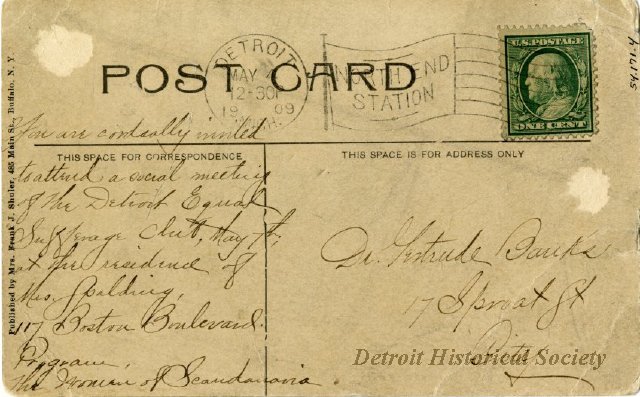 DETROIT
MAY 4
12-30
1909
MICH.
NORTH END
STATION
U.S. POSTAGE
ONE CENT
54.171.4
POST CARD
You are cordially invited
THIS SPACE FOR CORRESPONDENCE
to attend a social meeting
of the Detroit Equal
Sufferage Club, May 7th,
at the residence of
Mrs. Spalding,
117 Boston Boulevard.
Program,
The Women of Scandanavia.
THIS SPACE IS FOR ADDRESS ONLY
Dr. Gertrude Banks
17 Sproat St
City
Detroit Historical Society
Published by Mrs. Frank J. Shuler, 485 Main St., Buffalo, N. Y.